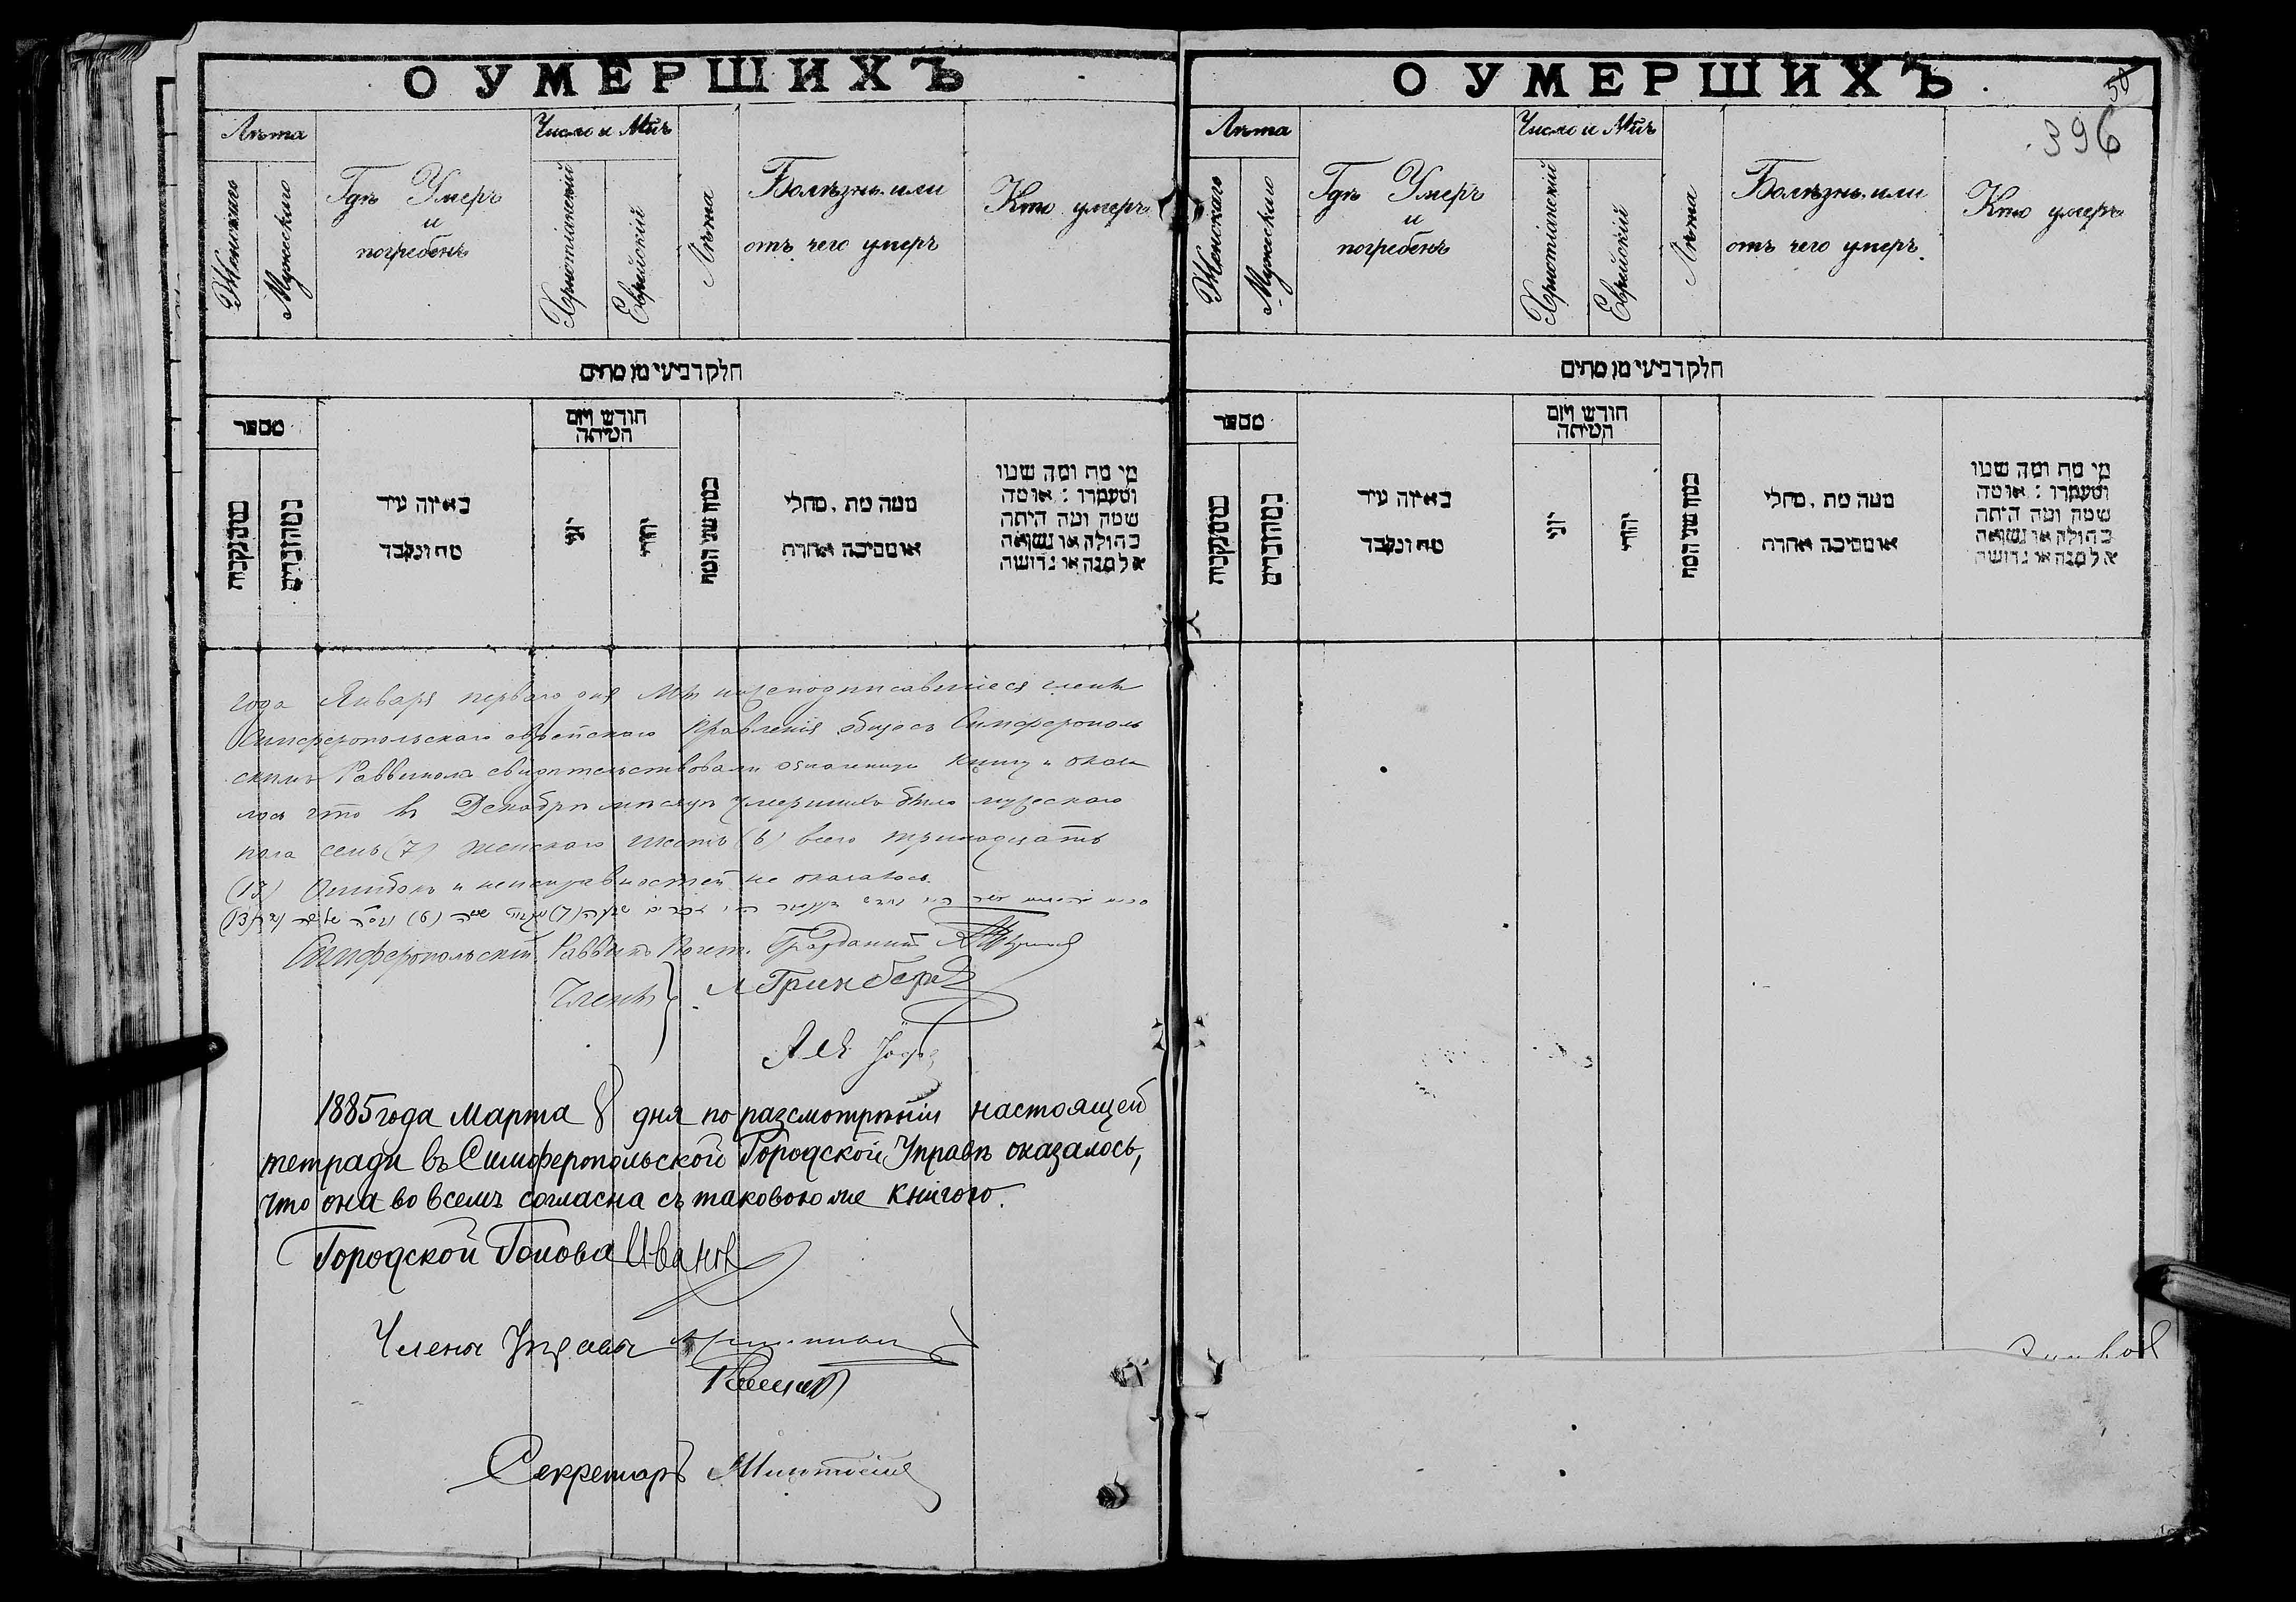 О УМЕРШИХЪ
Лѣта
Женскаго
Мужескаго
Гдѣ Умеръ
и
погребенъ
Число и Мѣц.
Христіанскій
Еврейскій
Лѣта
Болѣзнь или
отъ чего умеръ
Кто умеръ
חלק רביעי מן מתים
מספר
במין נקבות
במין זכרים
באיזה עיר
מת ונקבר
חודש ויום
המיתה
יוני
יהודי
כמה שני המת
ממה מת, מחלי
או מסיבה אחרת
מי מת ומה שמו
ומעמדו : או מה
שמה ומה היתה
בתולה או נשואה
אלמנה או גרושה
года Января перваго дня Мы нижеподписавшіеся члены
Симферопольскаго еврейскаго Правленія обще съ Симферополь
скимъ Раввиномъ свидѣтельствовали книгу и оказа
лось что въ Декабрѣ мѣсяцѣ умершихъ было мужескаго
пола семь (7) женскаго шесть (6) всего тринадцать
(13) Ошибокъ и неисправностей не оказалось.
(7) (6) (13)
Симферопольскій Раввинъ Почет. Гражданинъ
Члены } Л Гринберг
1885 года Марта 8 дня по разсмотрѣніи настоящей
тетради въ Симферопольской Городской Управѣ оказалось,
что она во всемъ согласна съ таковою же книгою.
Городской Голова Иванов
Члены Управы
Секретарь
О УМЕРШИХЪ.
50
396
Лѣта
Женскаго
Мужескаго
Гдѣ Умеръ
и
погребенъ
Число и Мѣц.
Христіанскій
Еврейскій
Лѣта
Болѣзнь или
отъ чего умеръ.
Кто умеръ
חלק רביעי מן מתים
מספר
במין נקבות
במין זכרים
באיזה עיר
מת ונקבר
חודש ויום
המיתה
יוני
יהודי
כמה שני המת
ממה מת, מחלי
או מסיבה אחרת
מי מת ומה שמו
ומעמדו : או מה
שמה ומה היתה
בתולה או נשואה
אלמנה או גרושה